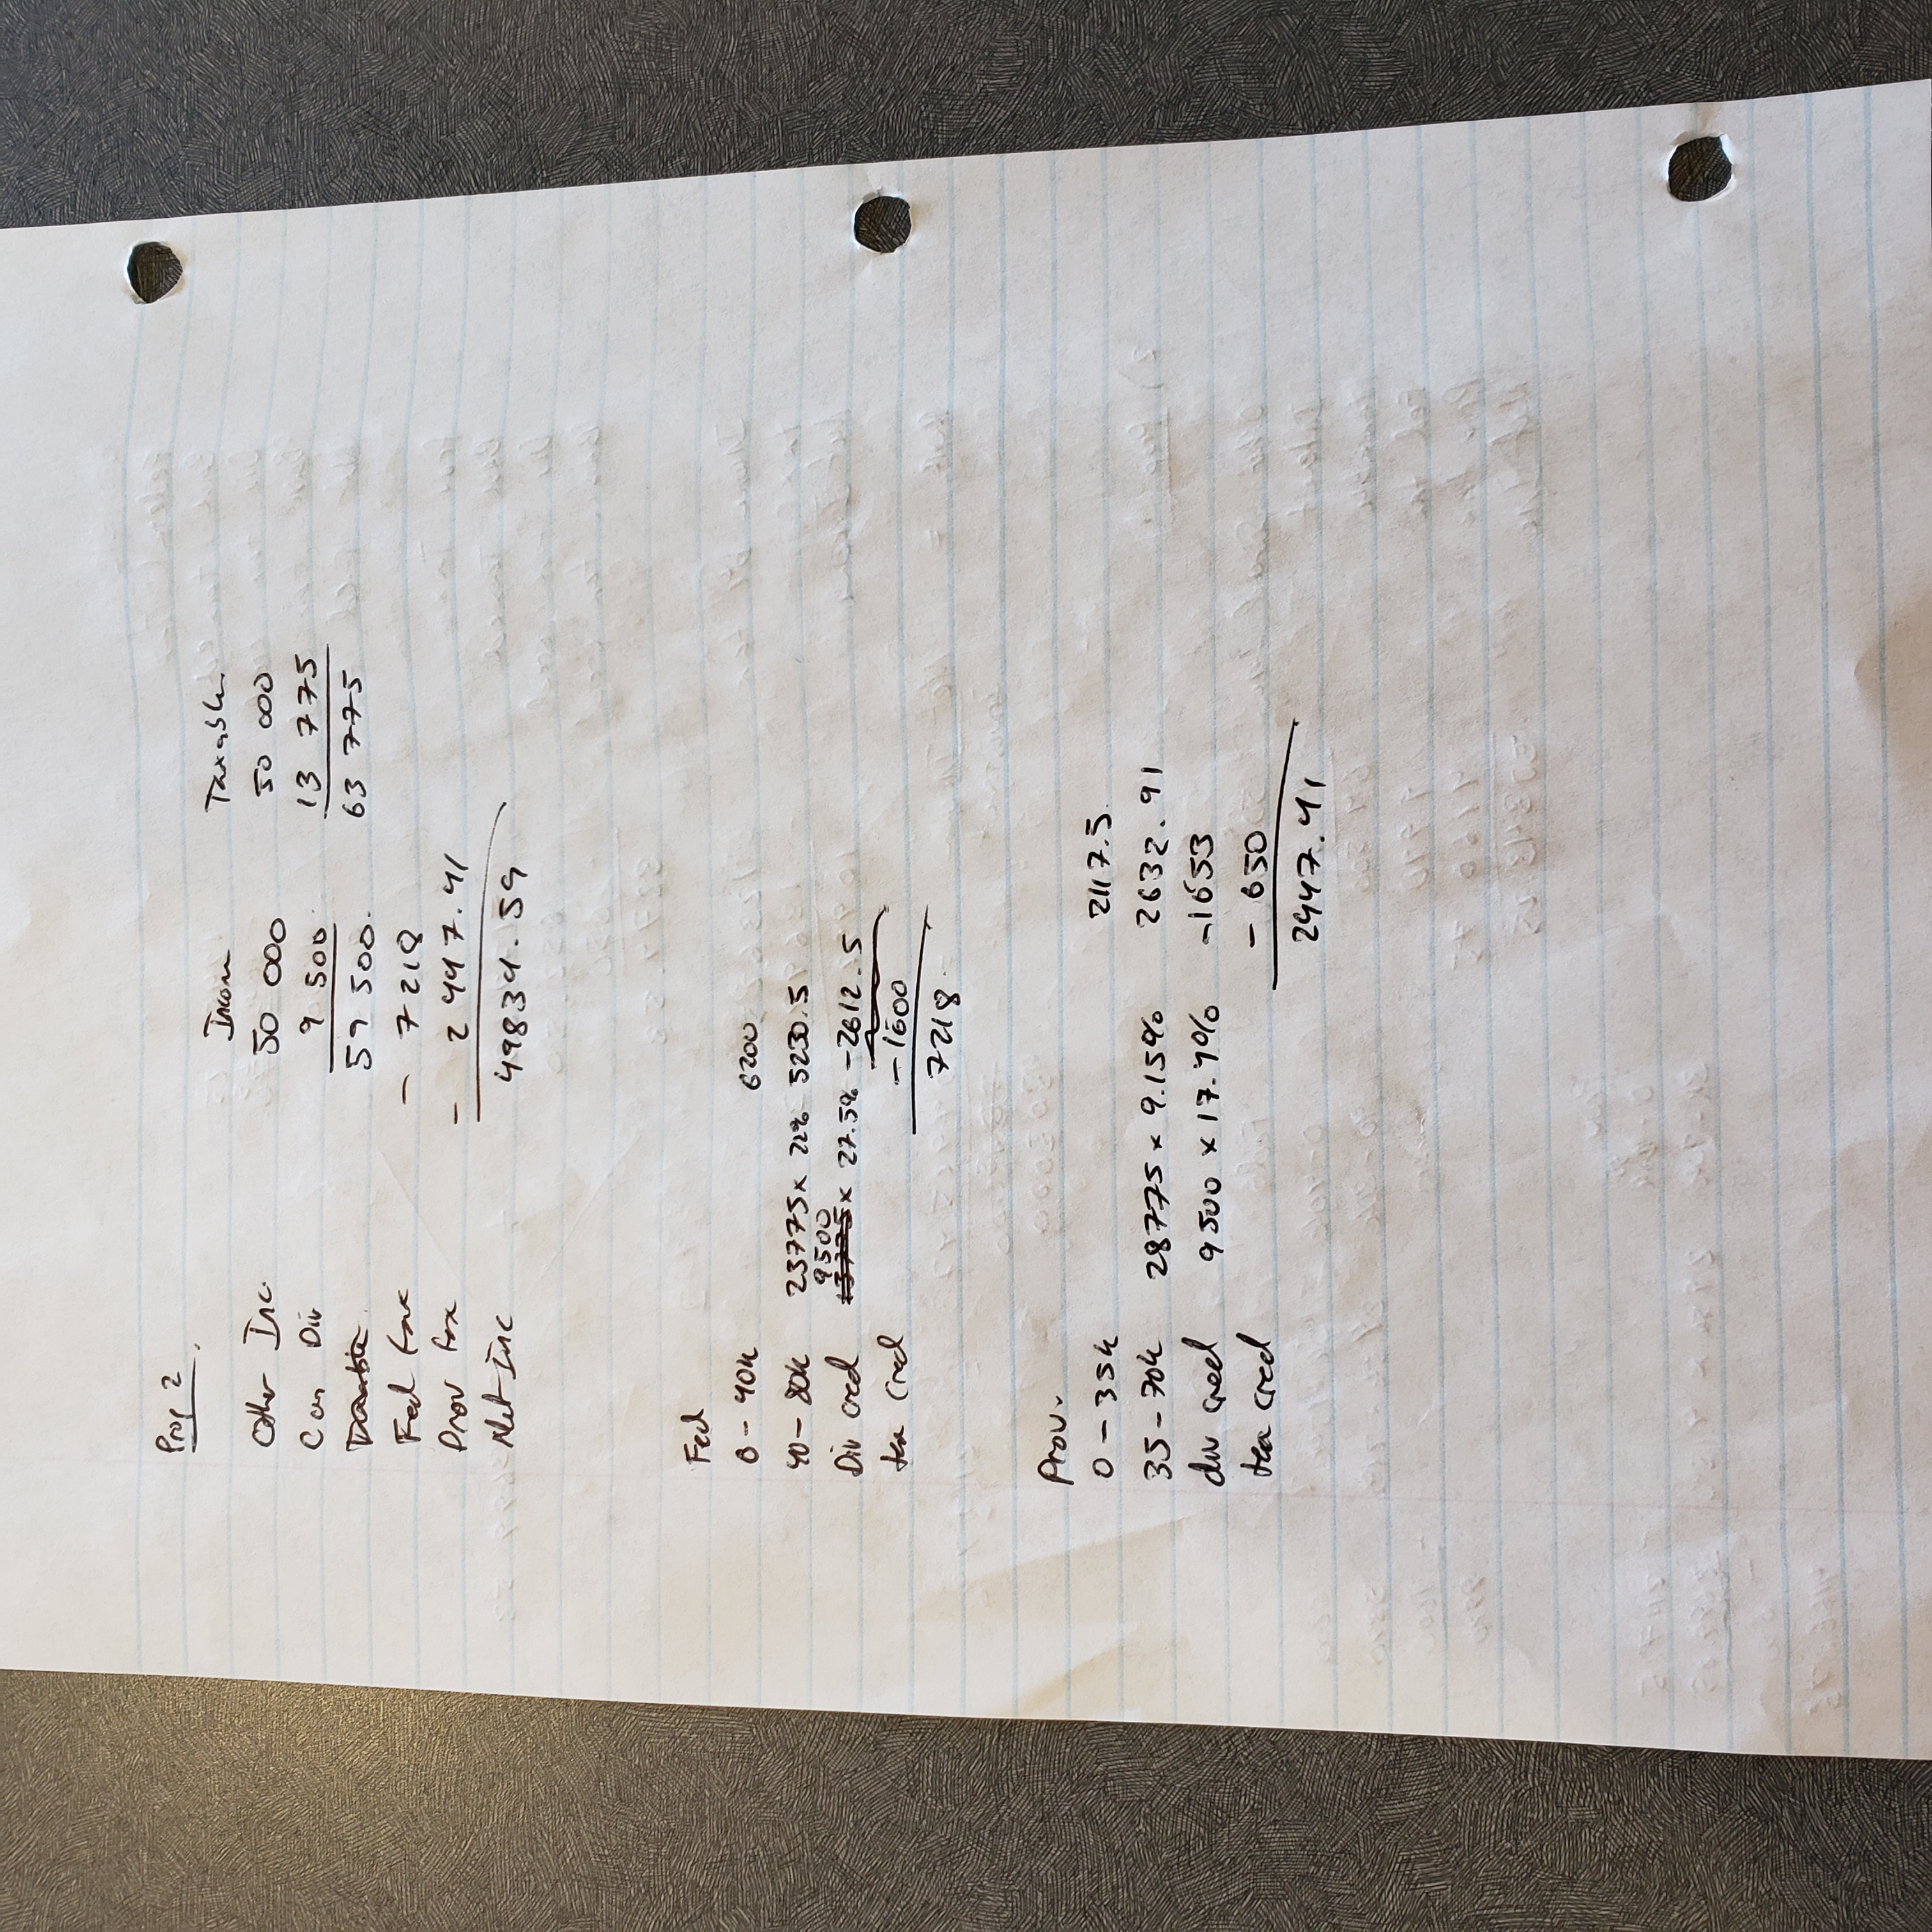 Prop 2
Incom Taxable
Other Inc. 50 000 50 000
Can Div 9 500 13 775
59 500. 63 775
Fed tax - 7218
Prov tax - 2447.41
Net Inc 49834.59
Fed
0 - 40k 6200
40 - 80k 23775 x 22% 5230.5
9500
Div cred 13775 x 27.5% -2612.5
tax cred -1600
7218
Prov.
0 - 35k 2117.5
35 - 70k 28775 x 9.15% 2632.91
div cred 9500 x 17.4% -1653
tax cred - 650
2447.41